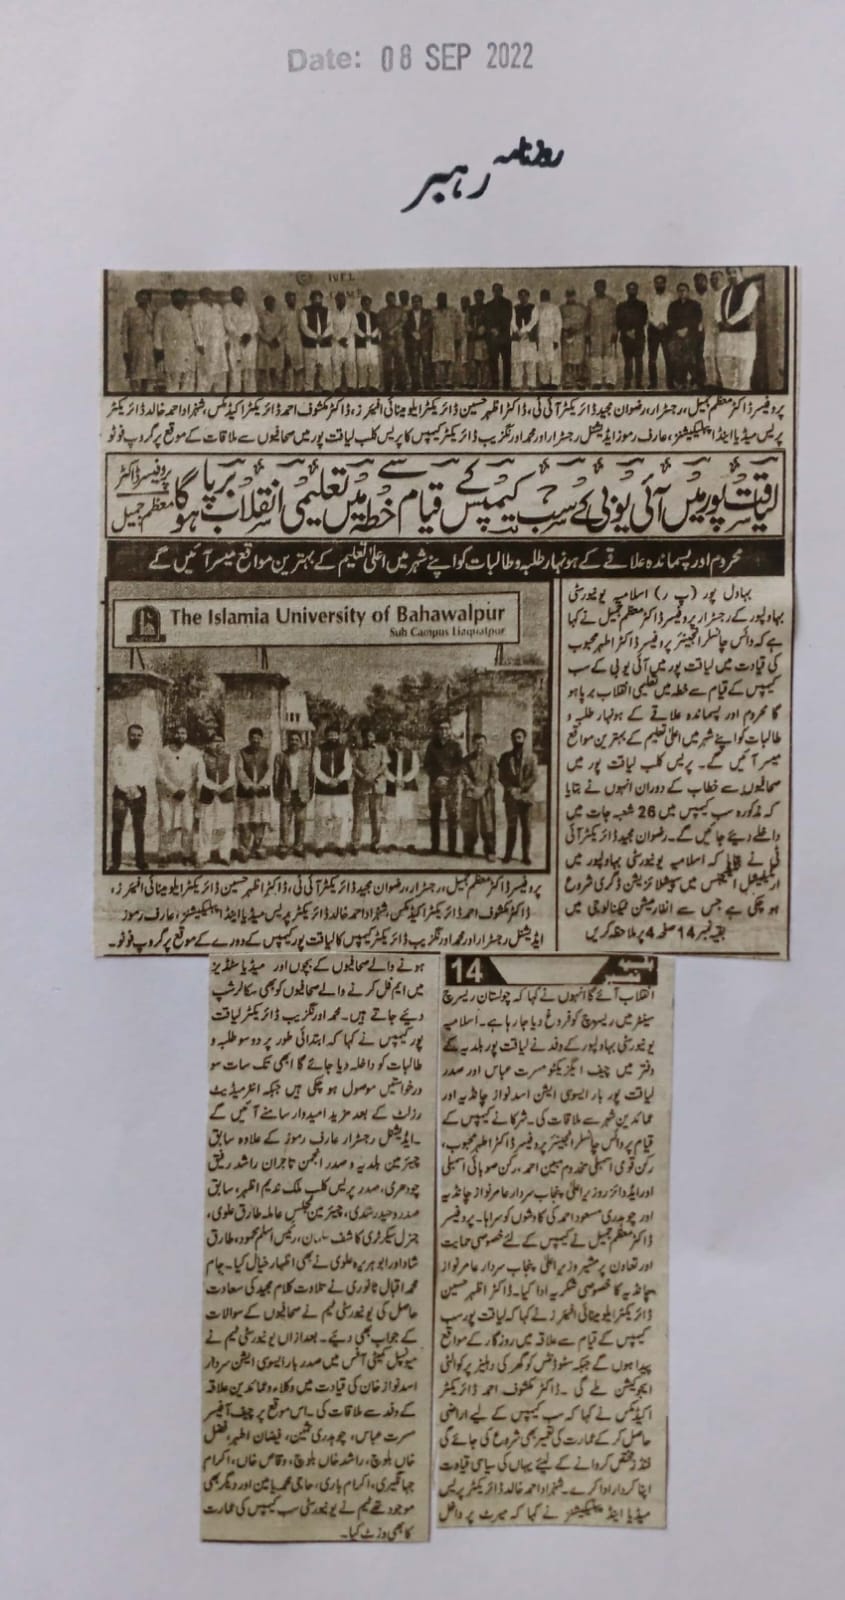 Date: 08 SEP 2022
روزنامہ رہبر
پروفیسر ڈاکٹر معظم جمیل، رجسٹرار، رضوان مجید ڈائریکٹر آئی ٹی، ڈاکٹر اظہر حسین ڈائریکٹر ایلومینائی افیئرز، ڈاکٹر مکشوف احمد ڈائریکٹر اکیڈمکس، شہزاد احمد خالد ڈائریکٹر
پریس میڈیا اینڈ پبلیکیشنز، عارف رموز ایڈیشنل رجسٹرار اور محمد اورنگزیب ڈائریکٹر کیمپس کا پریس کلب لیاقت پور میں صحافیوں سے ملاقات کے موقع پر گروپ فوٹو
لیاقت پور میں آئی یو بی کے سب کیمپس کے قیام سے خطہ میں تعلیمی انقلاب برپا ہوگا پروفیسر ڈاکٹر معظم جمیل
محروم اور پسماندہ علاقے کے ہونہار طلبہ و طالبات کو اپنے شہر میں اعلیٰ تعلیم کے بہترین مواقع میسر آئیں گے
The Islamia University of Bahawalpur
Sub Campus Liaquatpur
پروفیسر ڈاکٹر معظم جمیل، رجسٹرار، رضوان مجید ڈائریکٹر آئی ٹی، ڈاکٹر اظہر حسین ڈائریکٹر ایلومینائی افیئرز،
ڈاکٹر مکشوف احمد ڈائریکٹر اکیڈمکس، شہزاد احمد خالد ڈائریکٹر پریس میڈیا اینڈ پبلیکیشنز، عارف رموز
ایڈیشنل رجسٹرار اور محمد اورنگزیب ڈائریکٹر کیمپس کا لیاقت پور کیمپس کے دورے کے موقع پر گروپ فوٹو۔
بہاول پور (پ ر) اسلامیہ یونیورسٹی
بہاولپور کے رجسٹرار پروفیسر ڈاکٹر معظم جمیل نے کہا
ہے کہ وائس چانسلر انجینئر پروفیسر ڈاکٹر اطہر محبوب
کی قیادت میں لیاقت پور میں آئی یو بی کے سب
کیمپس کے قیام سے خطہ میں تعلیمی انقلاب برپا ہو
گا محروم اور پسماندہ علاقے کے ہونہار طلبہ و
طالبات کو اپنے شہر میں اعلیٰ تعلیم کے بہترین مواقع
میسر آئیں گے۔ پریس کلب لیاقت پور میں
صحافیوں سے خطاب کے دوران انہوں نے بتایا
کہ مذکورہ سب کیمپس میں 26 شعبہ جات میں
داخلے دیئے جائیں گے۔ رضوان مجید ڈائریکٹر آئی
ٹی نے بتایا کہ اسلامیہ یونیورسٹی بہاولپور میں
آرٹیفیشل انٹیلیجنس میں سپیشلائزیشن ڈگری شروع
ہو چکی ہے جس سے انفارمیشن ٹیکنالوجی میں
بقیہ نمبر 14 صفحہ 4 پر ملاحظہ کریں
بقیہ نمبر 14
انقلاب آئے گا انہوں نے کہا کہ چولستان ریسرچ
سینٹر میں ریسرچ کو فروغ دیا جا رہا ہے۔ اسلامیہ
یونیورسٹی بہاولپور کے وفد نے لیاقت پور بلدیہ کے
دفتر میں چیف ایگزیکٹو مسرت عباس اور صدر
لیاقت پور بار ایسوسی ایشن اسد نواز چانڈیہ اور
عمائدین شہر سے ملاقات کی۔ شرکا نے کیمپس کے
قیام پر وائس چانسلر انجینئر پروفیسر ڈاکٹر اطہر محبوب،
رکن قومی اسمبلی مخدوم مبین احمد، رکن صوبائی اسمبلی
اور ایڈوائزر وزیر اعلیٰ پنجاب سردار عامر نواز چانڈیہ
اور چوہدری مسعود احمد کی کاوشوں کو سراہا۔ پروفیسر
ڈاکٹر معظم جمیل نے کیمپس کے لئے خصوصی حمایت
اور تعاون پر مشیر وزیر اعلیٰ پنجاب سردار عامر نواز
چانڈیہ کا خصوصی شکریہ ادا کیا۔ ڈاکٹر اظہر حسین
ڈائریکٹر ایلومینائی افیئرز نے کہا کہ لیاقت پور سب
کیمپس کے قیام سے علاقہ میں روزگار کے مواقع
پیدا ہوں گے جبکہ سٹوڈنٹس کو گھر کی دہلیز پر کوالٹی
ایجوکیشن ملے گی۔ ڈاکٹر مکشوف احمد ڈائریکٹر
اکیڈمکس نے کہا کہ سب کیمپس کے لیے اراضی
حاصل کر کے عمارت کی تعمیر بھی شروع کی جائے گی
فنڈز مختص کروانے کے لیئے یہاں کی سیاسی قیادت
اپنا کردار ادا کرے۔ شہزاد احمد خالد ڈائریکٹر پریس
میڈیا اینڈ پبلیکیشنز نے کہا کہ میرٹ پر داخل
ہونے والے صحافیوں کے بچوں اور میڈیا سٹڈیز
میں ایم فل کرنے والے صحافیوں کو بھی سکالرشپ
دیئے جاتے ہیں۔ محمد اورنگزیب ڈائریکٹر لیاقت
پور کیمپس نے کہا کہ ابتدائی طور پر دو سو طلبہ و
طالبات کو داخلہ دیا جائے گا ابھی تک سات سو
درخواستیں موصول ہو چکی ہیں جبکہ انٹرمیڈیٹ
رزلٹ کے بعد مزید امیدوار سامنے آئیں گے
۔ ایڈیشنل رجسٹرار عارف رموز کے علاوہ سابق
چیئرمین بلدیہ و صدر انجمن تاجران راشد رفیق
چودھری، صدر پریس کلب ملک ندیم اظہر، سابق
صدر وحید رشدی، چیئرمین مجلس عاملہ طارق علوی،
جنرل سیکرٹری کاشف سلمان، رئیس اسلم محمود، طارق
شاد اور ابوہریرہ علوی نے بھی اظہار خیال کیا۔ جام
محمد اقبال ثانوری نے تلاوت کلام مجید کی سعادت
حاصل کی یونیورسٹی ٹیم نے صحافیوں کے سوالات
کے جواب بھی دیئے۔ بعد ازاں یونیورسٹی ٹیم نے
میونسپل کمیٹی آفس میں صدر بار ایسوسی ایشن سردار
اسد نواز خان کی قیادت میں وکلاء و عمائدین علاقہ
کے وفد سے ملاقات کی۔ اس موقع پر چیف آفیسر
مسرت عباس، چوہدری ثمین، فیضان اطہر، فضل
خاں بلوچ، راشد خاں بلوچ، وقاص خاں، اکرام
جہانگیری، اکرام باری، حاجی محمد یامین اور دیگر بھی
موجود تھے ٹیم نے یونیورسٹی سب کیمپس کی عمارت
کا بھی وزٹ کیا۔